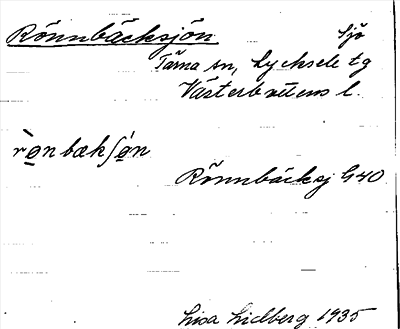 Rönnbäcksjön Sjö
Tärna sn, Lycksele tg
Västerbottens l.
rø̀nbækʃǿn
Rönnbäcksj G40
Lisa Lidberg 1935